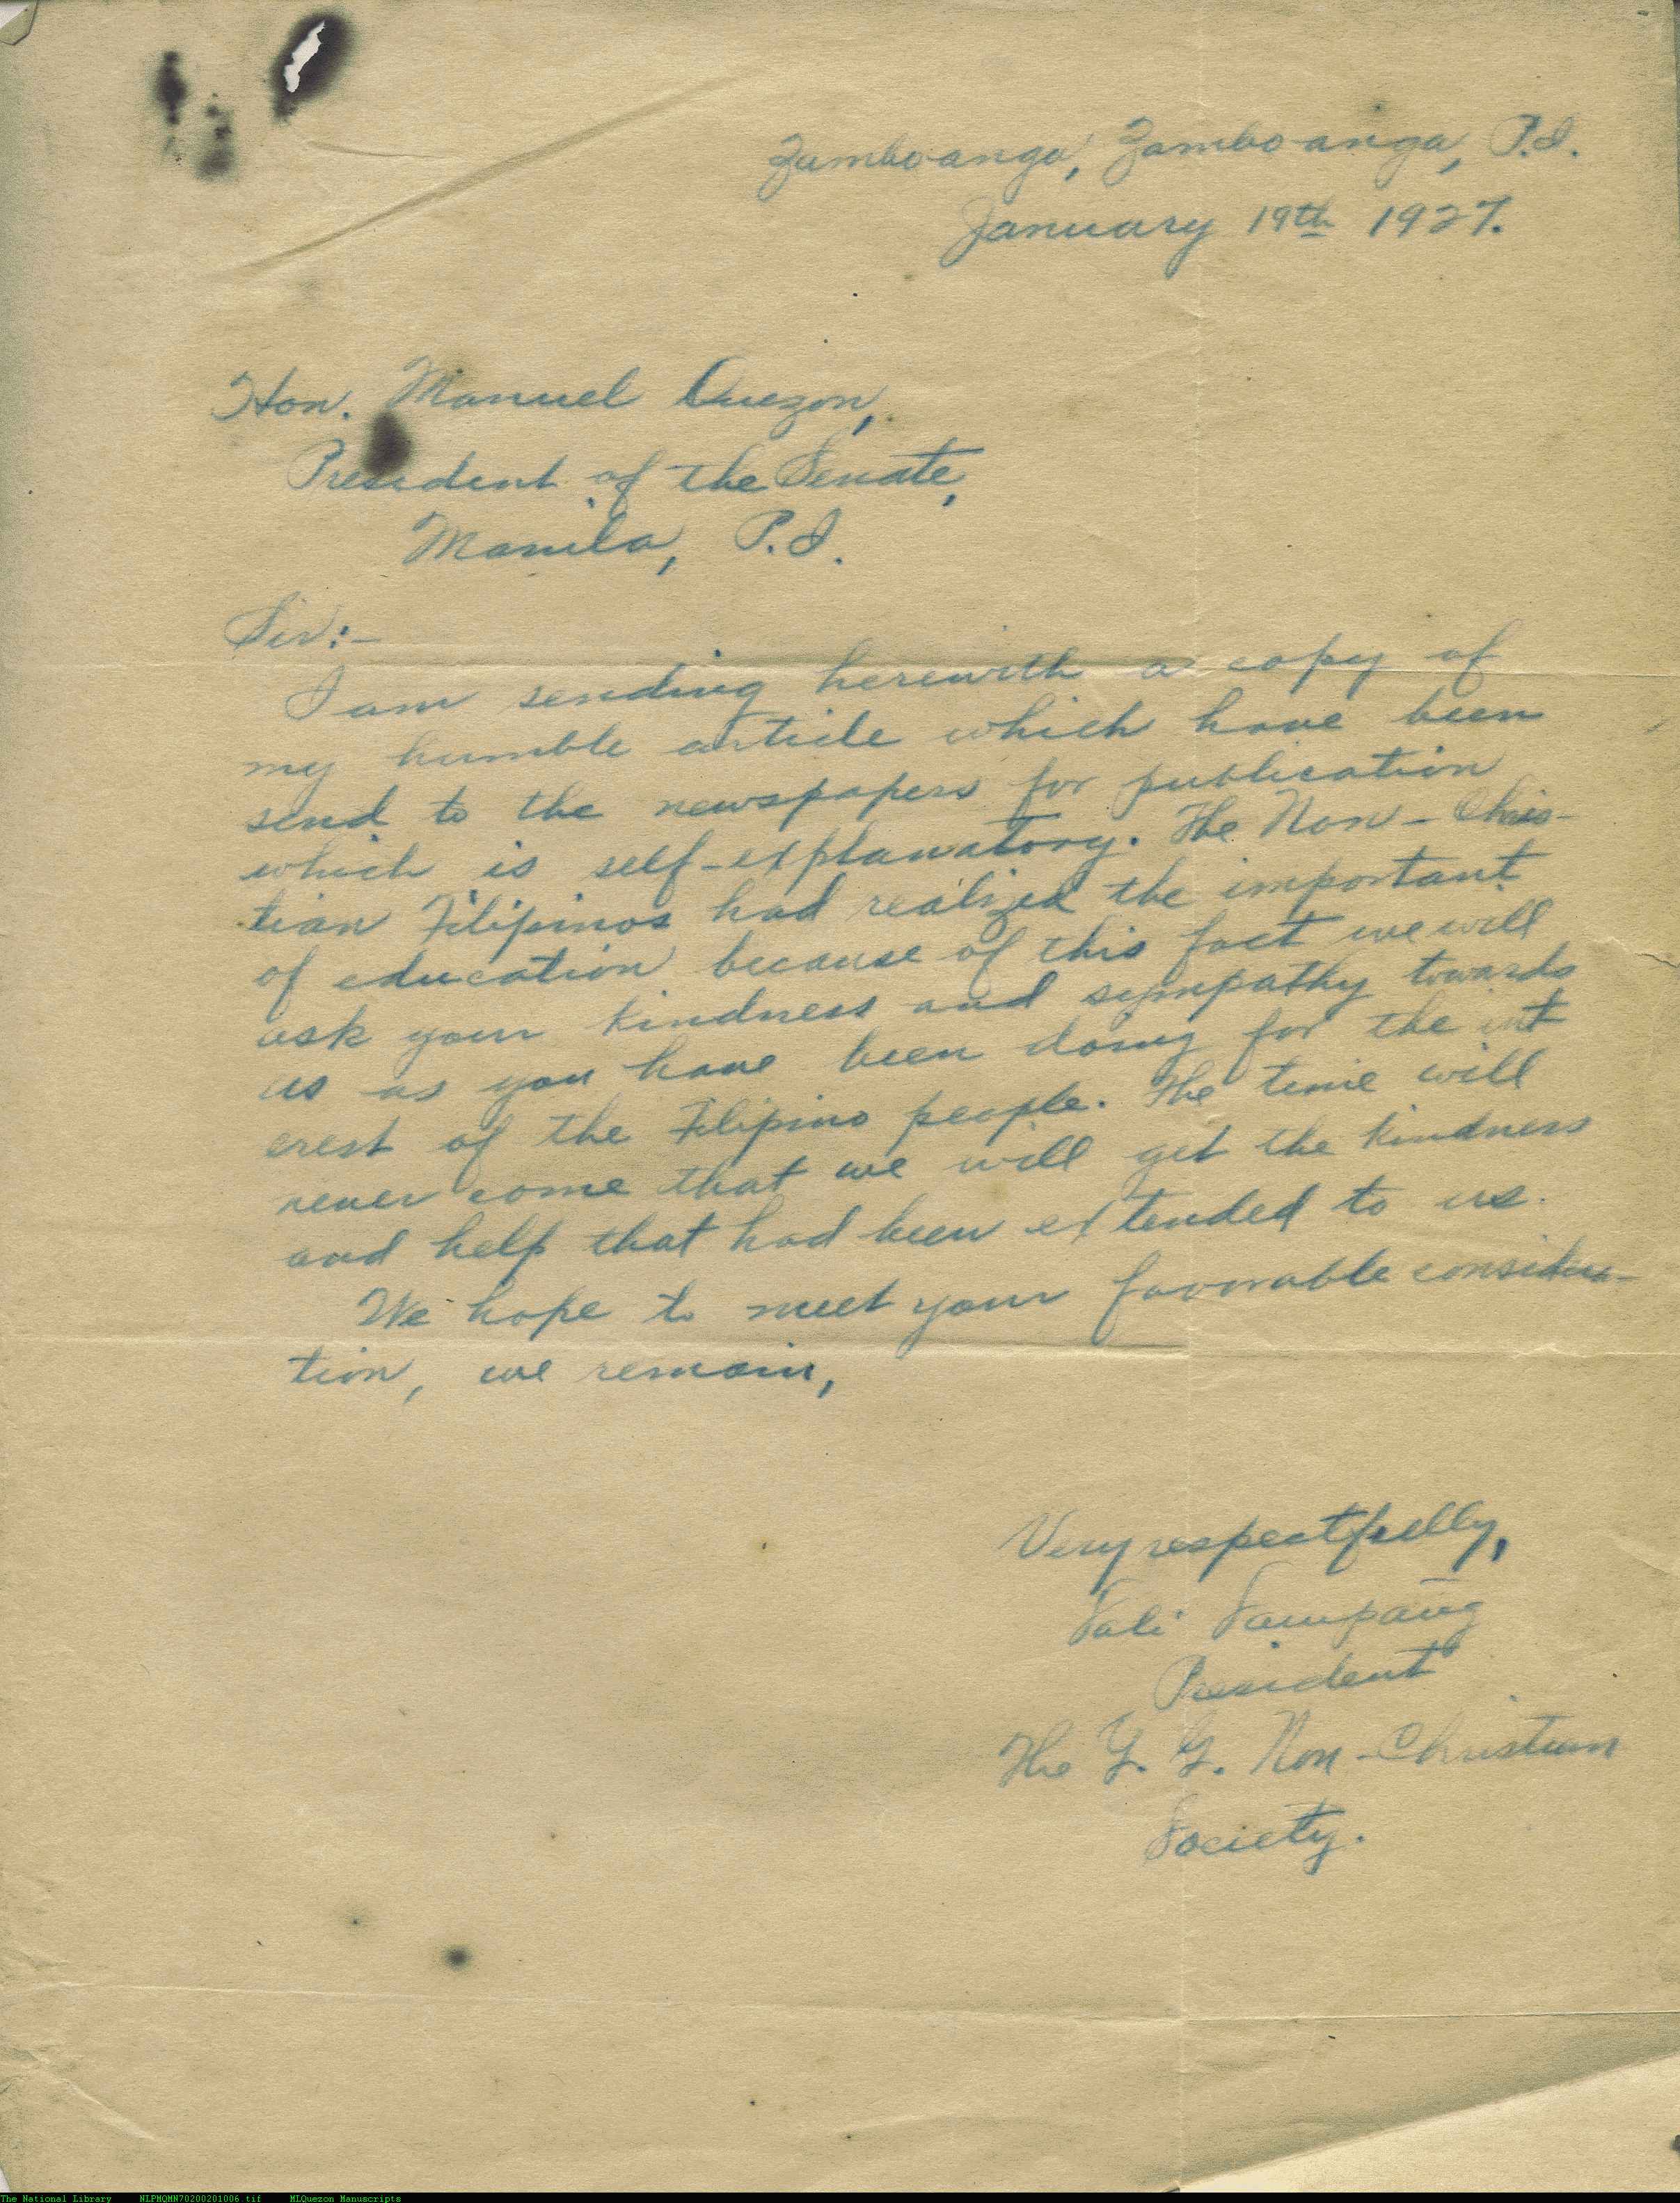 Zamboanga, Zamboanga, P.I.
January 19th 1927.
Hon. Manuel Quezon,
President of the Senate,
Manila, P.I.
Sir:-
I am sending herewith a copy of
my humble article which have been
send to the newspapers for publication
which is self-explanatory. The Non-Chris-
tian Filipinos had realized the important
of education because of this fact we will
ask your kindness and sympathy towards
us as you have been doing for the int
erest of the Filipino people. The time will
never come that we will get the kindness
and help that had been extended to us.
We hope to meet your favorable considera-
tion, we remain,
Very respectfully,
President
The Y. Y. Non-Christian
Society.
The National Library NLPMQMN70200201006.tif MLQuezon Manuscripts